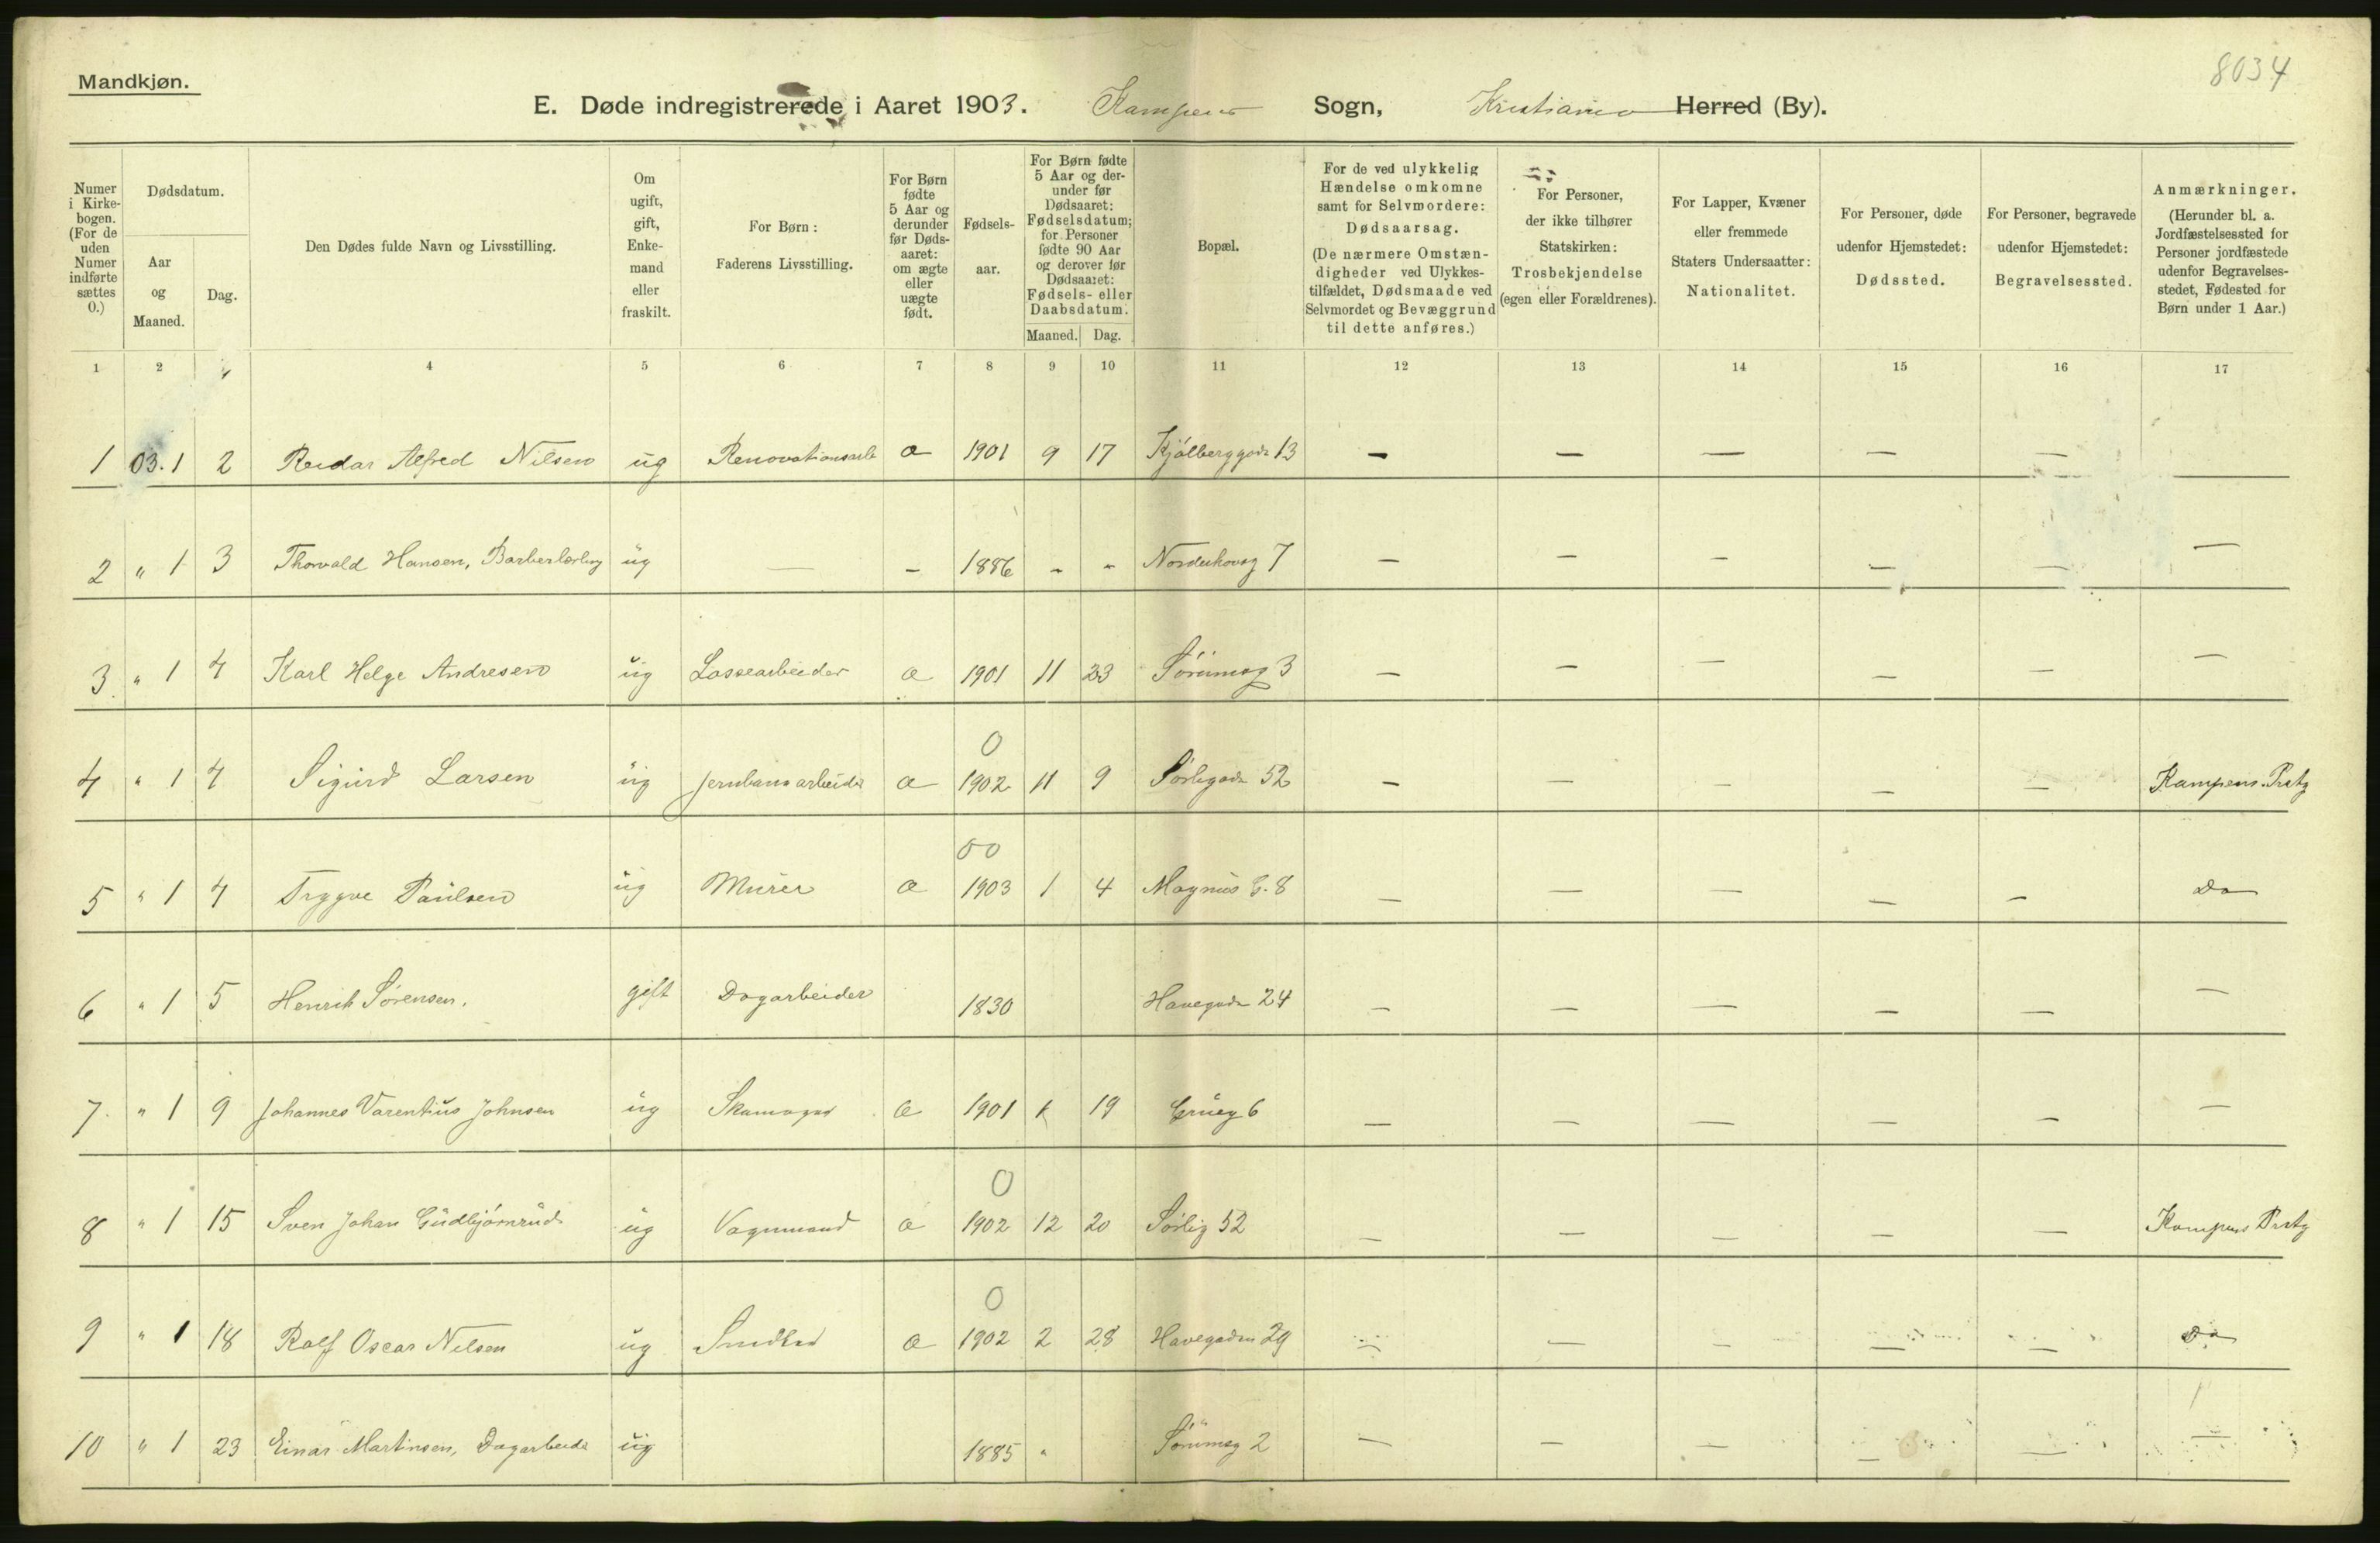 8034
Mandkjøn.
E. Døde indregistrerede i Aaret 1903. Kampens Sogn, Kristiania Herred (By).
Numer i Kirkebogen. (For de uden Numer indførte sættes 0.)
Dødsdatum.
Aar og Maaned.
Dag.
Den Dødes fulde Navn og Livsstilling.
Om ugift, gift, Enkemand eller fraskilt.
For Børn: Faderens Livsstilling.
For Børn fødte 5 Aar og derunder før Dødsaaret: om ægte eller uægte født.
Fødselsaar.
For Børn fødte 5 Aar og derunder før Dødsaaret: Fødselsdatum; for Personer fødte 90 Aar og derover før Dødsaaret: Fødsels- eller Daabsdatum.
Maaned. Dag.
Bopæl.
For de ved ulykkelig Hændelse omkomne samt for Selvmordere: Dødsaarsag. (De nærmere Omstændigheder ved Ulykkestilfældet, Dødsmaade ved Selvmordet og Bevæggrund til dette anføres.)
For Personer, der ikke tilhører Statskirken: Trosbekjendelse (egen eller Forældrenes).
For Lapper, Kvæner eller fremmede Staters Undersaatter: Nationalitet.
For Personer, døde udenfor Hjemstedet: Dødssted.
For Personer, begravede udenfor Hjemstedet: Begravelsessted.
Anmærkninger. (Herunder bl. a. Jordfæstelsessted for Personer jordfæstede udenfor Begravelsesstedet, Fødested for Børn under 1 Aar.)
1 2 4 5 6 7 8 9 10 11 12 13 14 15 16 17
1 03.1 2 Reidar Alfred Nilsen ug Renovationsarb a 1901 9 17 Kjølberggade 13 — — — — —
2 " 1 3 Thorvald Hansen, Barberlærling ug — — 1886 - - Norderhovsg 7 — — — — — —
3 " 1 4 Karl Helge Andresen ug Lossearbeider a 1901 11 23 Sørumsg 3 — — — — — —
0
4 " 1 4 Sigurd Larsen ug Jernbanearbeider a 1902 11 9 Sørligade 52 — — — — — Kampens Prstg
00
5 " 1 4 Trygve Paulsen ug Murer a 1903 1 4 Magnus G. 8 — — — — — Do
6 " 1 5 Henrik Sørensen. gift Dagarbeider 1830 Havegade 24 — — — — — —
7. " 1 9 Johannes Varentius Johnsen ug Skomager a 1901 19 Grüeg 6 — — — — — —
0
8 " 1 15 Sven Johan Gudbjørnrud ug Vognmand a 1902 12 20 Sørlig 52 — — — — — Kampens Prstg
0
9 " 1 18 Ralf Oscar Nilsen ug Snedker a 1902 2 28 Havegaden 29 — — — — — Do
10 " 1 23 Einar Martinsen, Dagarbeider ug 1885 " Sørumsg 2 — — — — — —